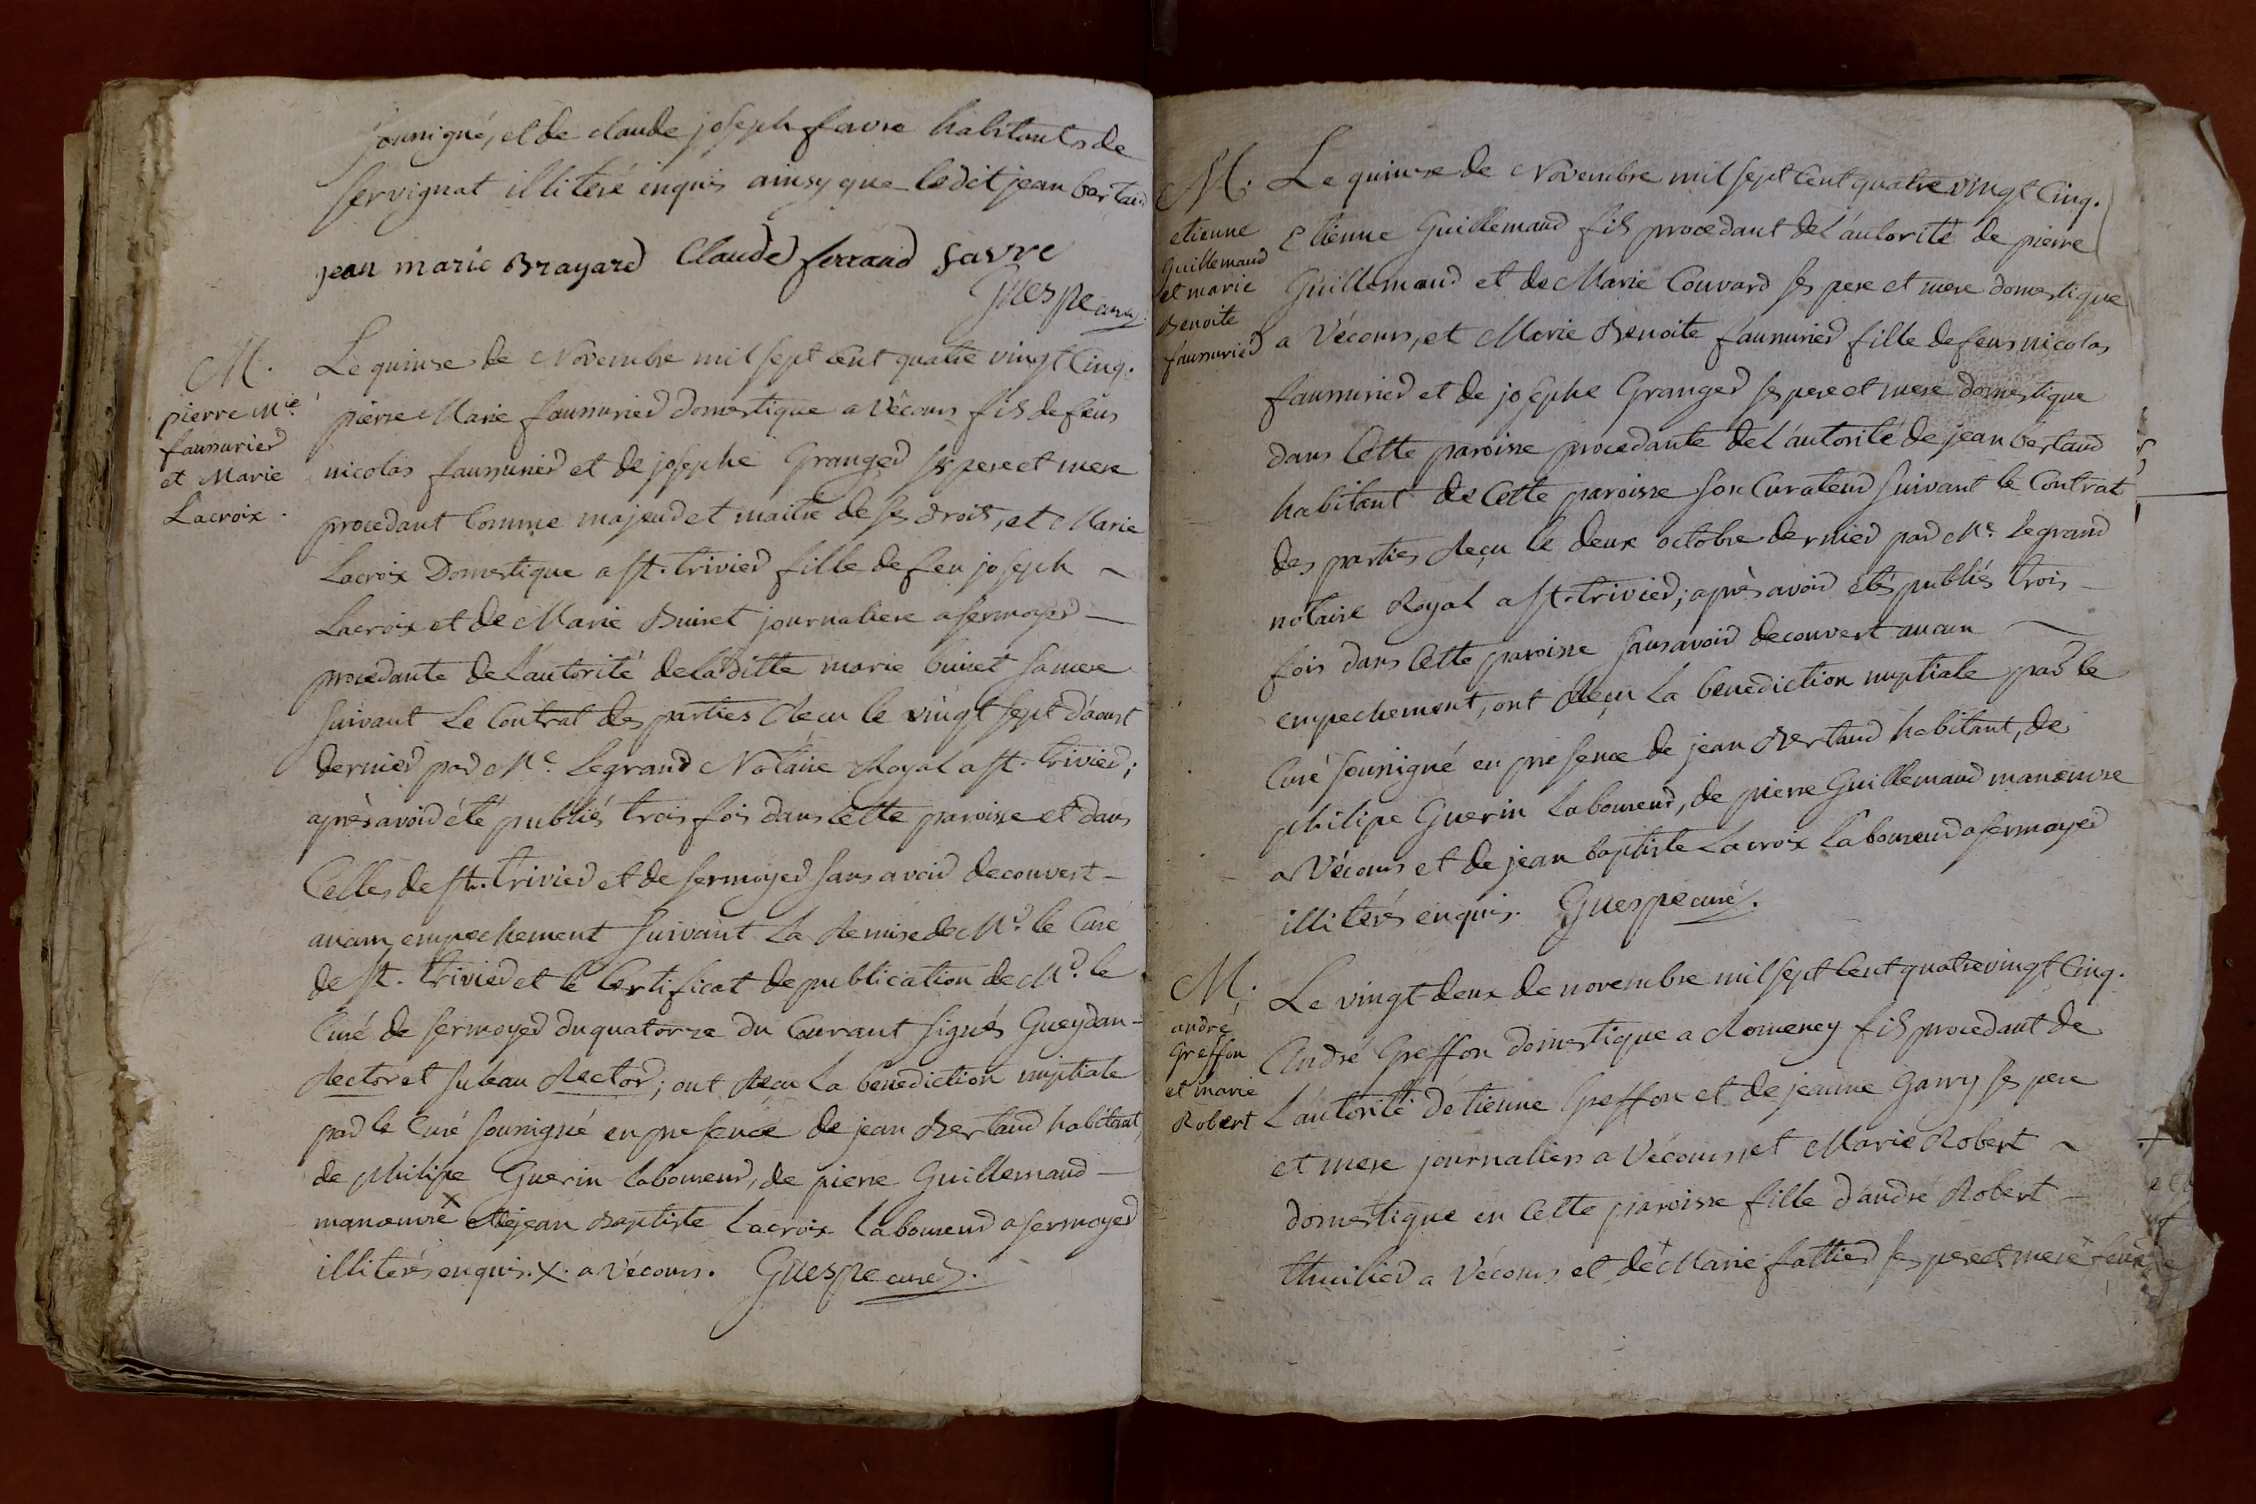 sousigné, et de claude joseph favre habitants de
servignat illiteré enquis ainsy que ledit jean bertaud
jean marie Brayard Claude ferraud favre
Guespe curé
M.
pierre Mie.
faussurier
et Marie
Lacroix.
Le quinse de Novembre mil sept cent quatre vingt cinq.
pierre Marie faussurier domestique a Vécours fils de feus
nicolas faussurier et de josephe Granger ses pere et mere
procedant comme majeur et maitre de ses droits, et Marie
Lacroix Domestique a st. trivier fille de feu joseph
Lacroix et de Marie Buiret journaliere a sermoyer
procedante de l'autorité de laditte marie buiret sa mere
suivant le contrat des parties Recu le vingt sept d'aoust
dernier par Me. Legrand Notaire Royal a st. trivier;
après avoir été publiés trois fois dans cette paroisse et dans
Celles de st. trivier et de sermoyer sans avoir decouvert
aucun empechement suivant la Remise de Mr. le Curé
de st. trivier et le certificat de publication de Mr. le
Curé de sermoyer du quatorze du Courant signés Gueydan
Rector et suleau Rector; ont Reçu la benediction nuptiale
par le Curé sousigné en presence de jean Bertaud habitant,
de philipe Guerin laboureur, de pierre Guillemaud
manœuvre x et de jean Baptiste Lacroix laboureur a sermoyer
illiterés enquis. x. a Vécours. Guespe curé.
M.
etienne
Guillemaud
et marie
Benoite
faussurier
Le quinse de Novembre mil sept cent quatre vingt cinq.
Etienne Guillemaud fils procedant de l'autorité de pierre
Guillemaud et de Marie Couvard ses pere et mere domestique
a Vécours, et Marie Benoite faussurier fille de feus nicolas
faussurier et de josephe Granger ses pere et mere domestique
dans cette paroisse procedante de l'autorité de jean bertaud
habitant de cette paroisse son Curateur suivant le Contrat
des parties Reçu le deux octobre dernier par Me. Legrand
notaire Royal a st. trivier; après avoir étés publiés trois
fois dans cette paroisse sans avoir decouvert aucun
empechement, ont Reçu la benediction nuptiale par le
Curé sousigné en presence de jean Bertaud habitant, de
philipe Guerin laboureur, de pierre Guillemaud manœuvre
a Vécours et de jean baptiste Lacroix laboureur a sermoyer
illiterés enquis. Guespe curé.
M.
andré
Greffon
et marie
Robert
Le vingt deux de novembre mil sept cent quatre vingt cinq.
André Greffon domestique a Romeney fils procedant de
l'autorité d'etienne Greffon et de jeanne Garry ses pere
et mere journaliers a Vécours, et Marie Robert
domestique en cette paroisse fille d'andré Robert
thuilier a Vécours et de Marie fattier ses pere et mere